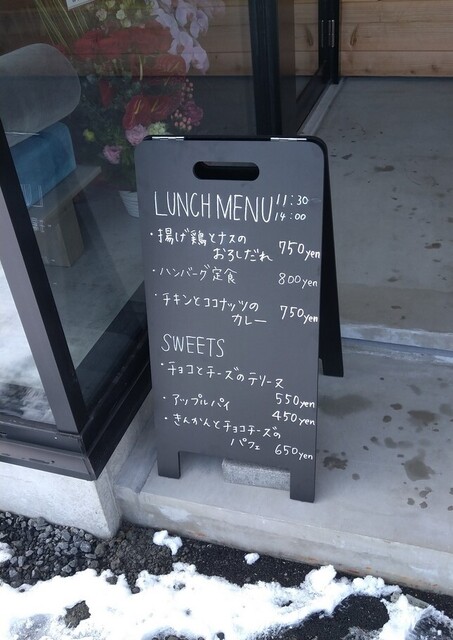 LUNCH MENU 11:30
14:00
・揚げ鶏とナスの
おろしだれ 750yen
・ハンバーグ定食 800yen
・チキンとココナッツの
カレー 750yen
SWEETS
・チョコとチーズのテリーヌ
550yen
・アップルパイ 450yen
・きんかんとチョコチーズの
パフェ 650yen